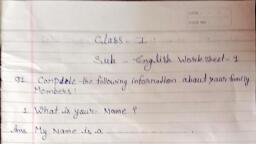 Class - 1
Sub - English Worksheet - 1
Q1. Complete the following information about your family
Members:
1. What is your Name ?
Ans. My Name is a